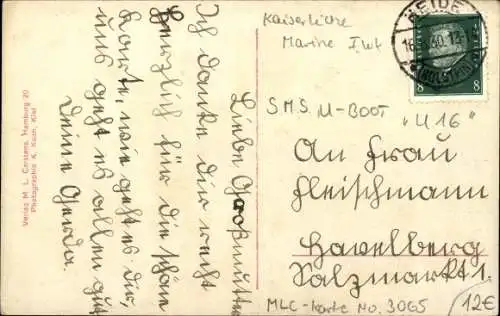 Liebe Großmutter
Ich danke dir recht
herzlich für die schöne
Karte, wie geht es dir,
uns geht es allen gut
Deine Gerda.
Verlag M. L. Carstens, Hamburg 20
Photographie K. Kiel
Kaiserliche
Marine I.Wk
S.M.S. U-BOOT
"U 16"
HEIDE
(HOLSTEIN)
8 8
An Frau
Fleischmann
Havelberg
Salzmarkt 1.
MLC-Karte No. 3065
12€